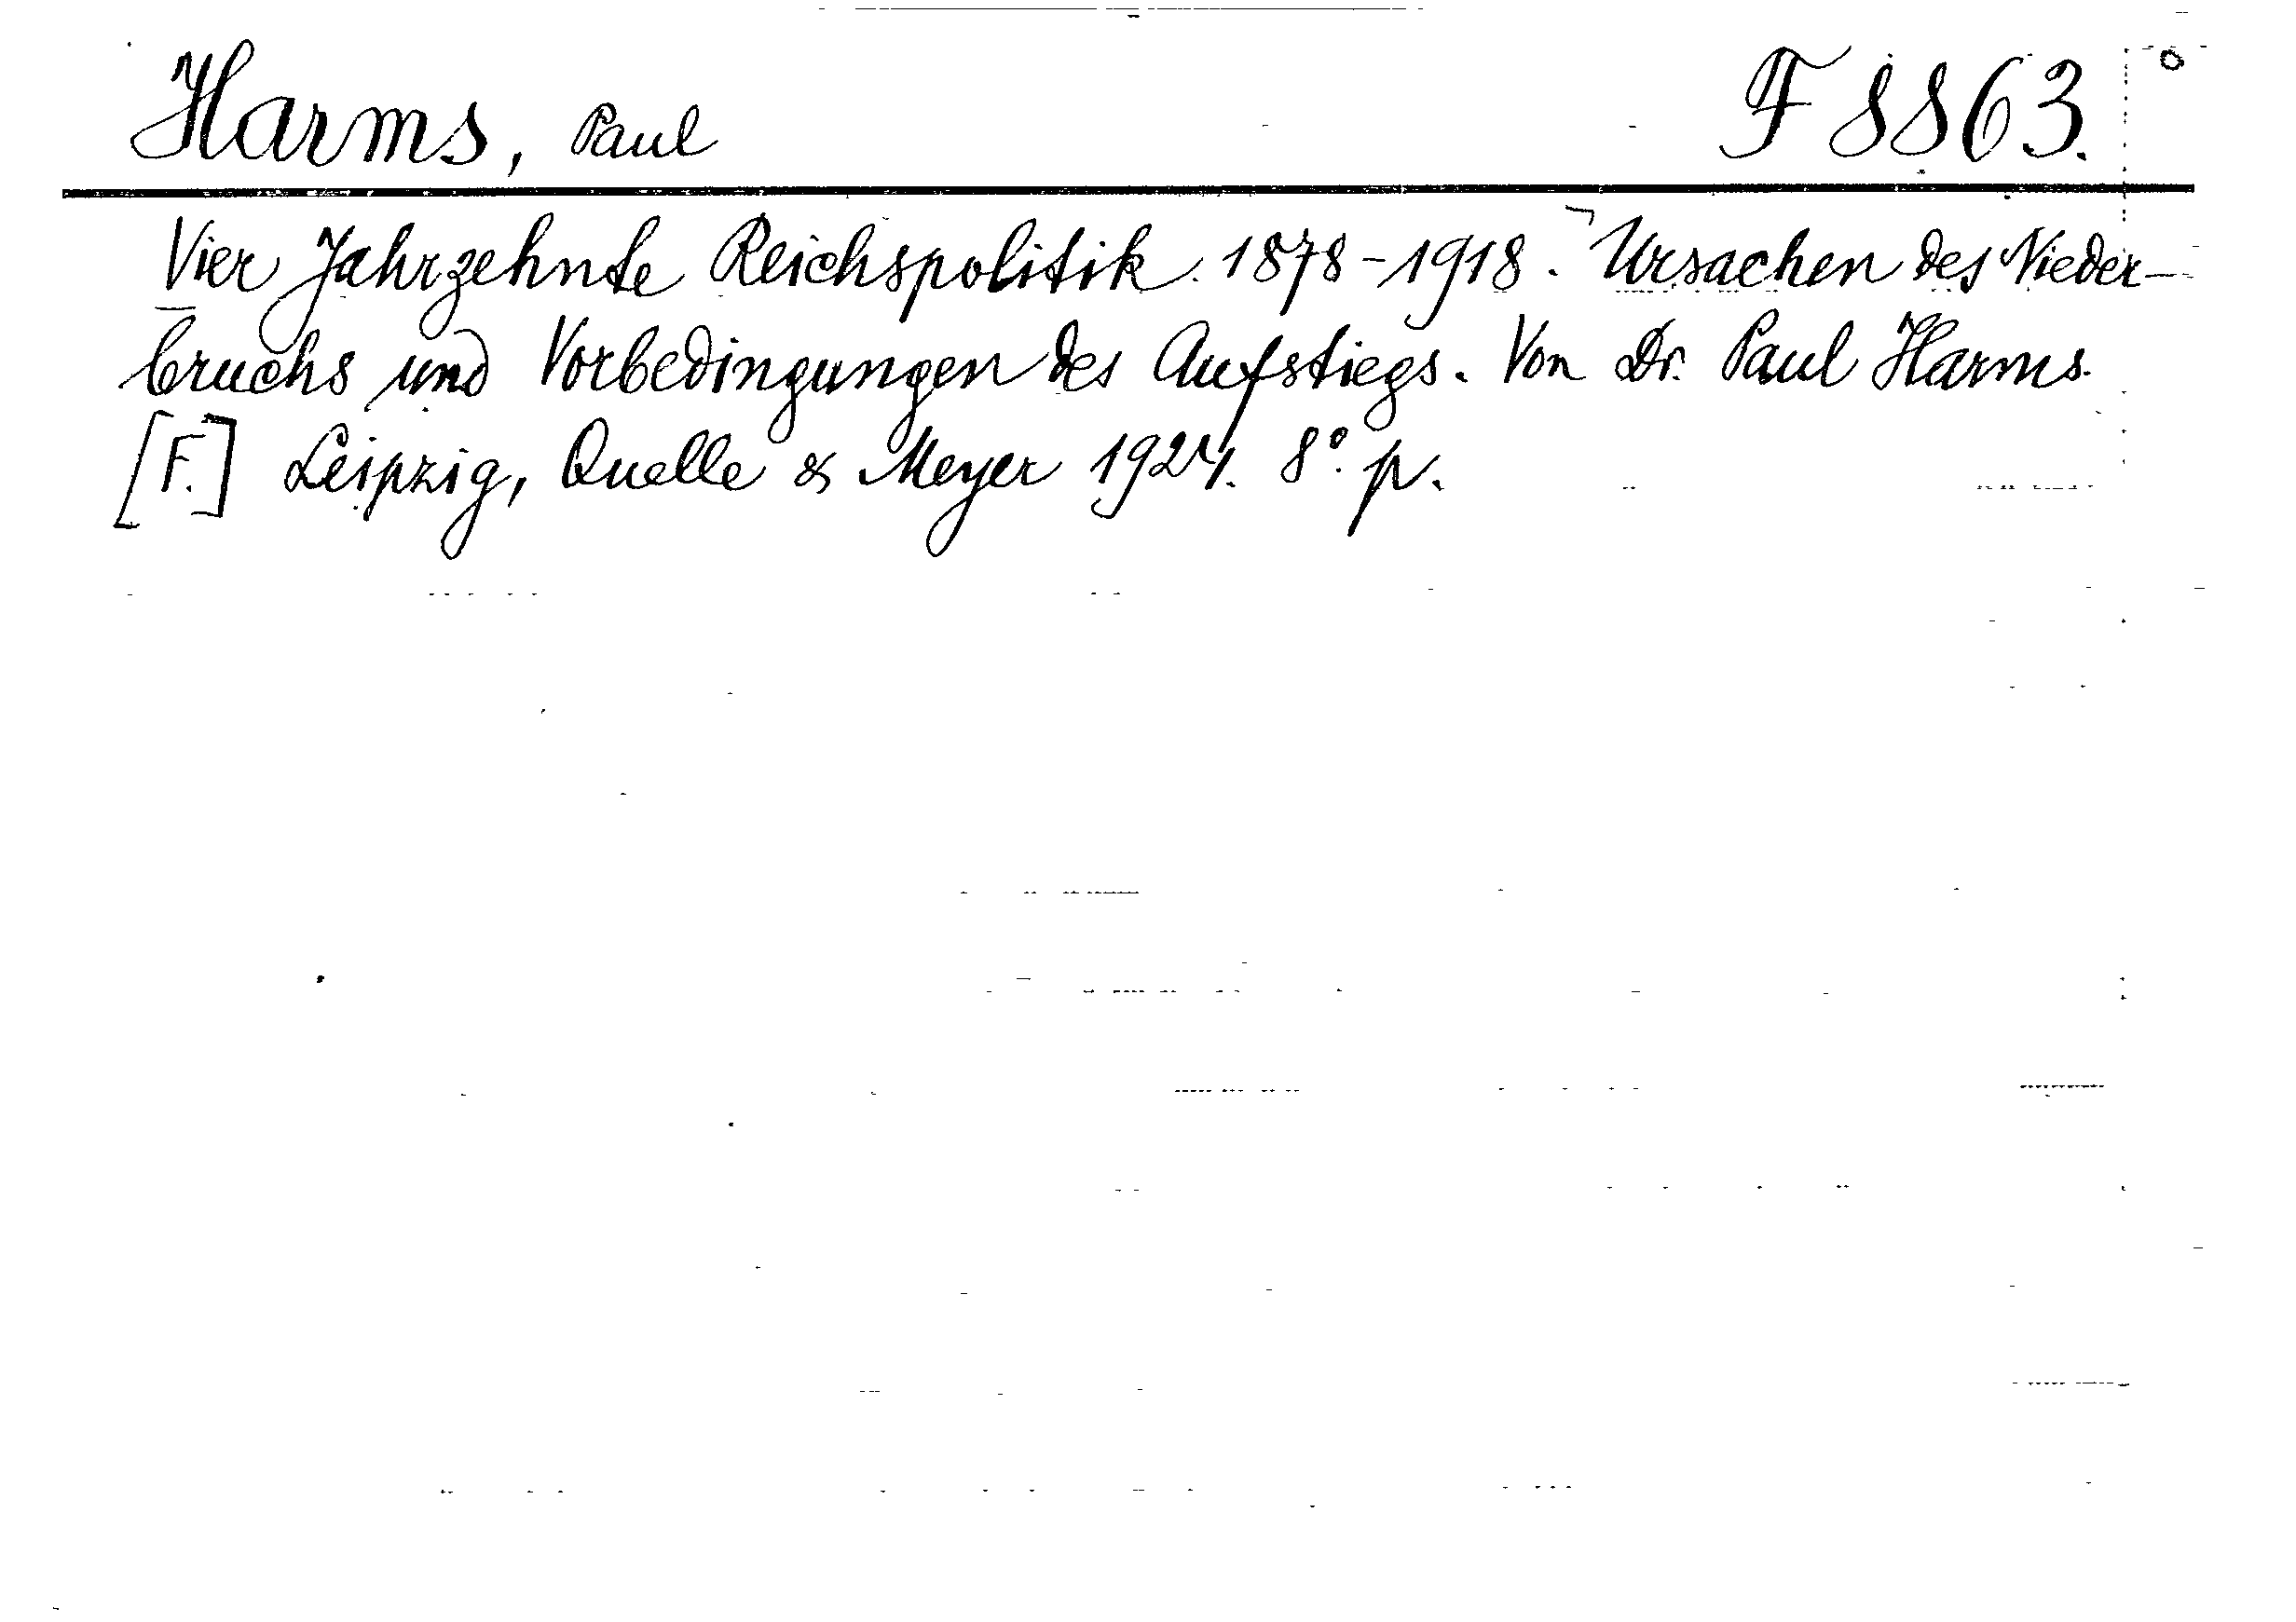 Harms, Paul F 8863.
Vier Jahrzehnte Reichspolitik. 1878-1918. Ursachen des Nieder-
bruchs und Vorbedingungen des Aufstiegs. Von Dr. Paul Harms.
[F.] Leipzig, Quelle & Meyer 1924. 8° p.